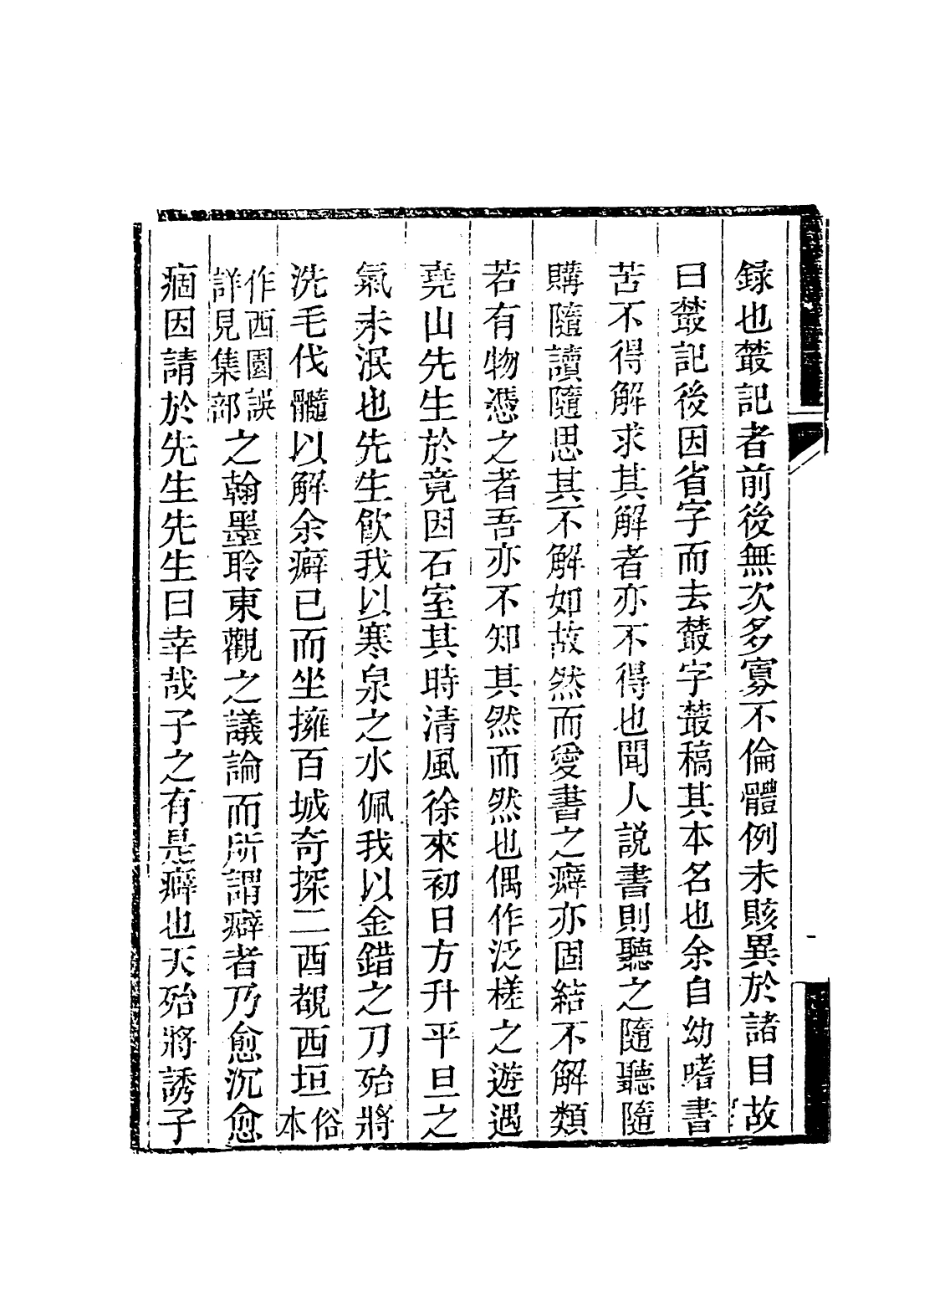 録也藂記者前後無次多寡不倫體例未賅異於諸目故
曰藂記後因省字而去藂字藂稿其本名也余自幼嗜書
苦不得解求其解者亦不得也聞人說書則聽之隨聽隨
購隨讀隨思其不解如故然而愛書之癖亦固結不解類
若有物憑之者吾亦不知其然而然也偶作泛槎之遊遇
堯山先生於竟因石室其時清風徐來初日方升平旦之
氣未泯也先生飲我以寒泉之水佩我以金錯之刀殆將
洗毛伐髓以解余癖已而坐擁百城奇探二酉覩西垣俗本
作西園誤詳見集部之翰墨聆東觀之議論而所謂癖者乃愈沉愈
痼因請於先生先生曰幸哉子之有是癖也天殆將誘子